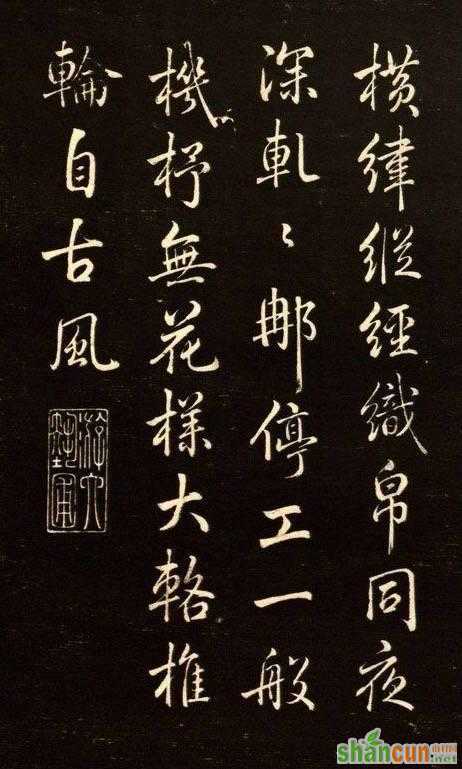 橫緯縱經織帛同夜
深軋〻那停工一般
機杼無花樣大輅椎
輪自古風
游六藝圃
shancun
.net